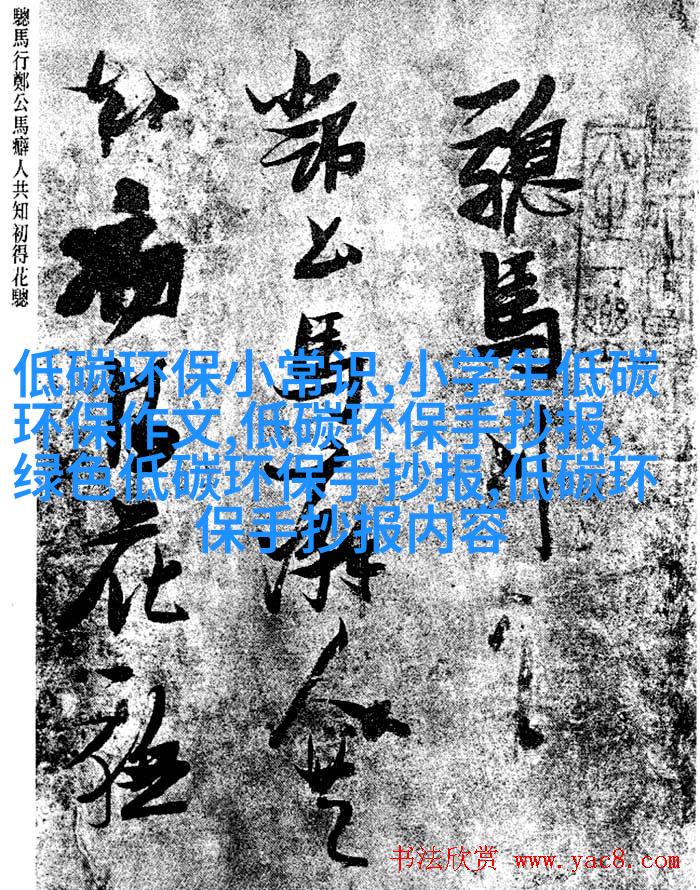 驄馬行鄭公馬癖人共知初得花驄
驄馬行
鄭公馬癖人共
知初得花驄
低碳环保小常识,小学生低碳
环保作文,低碳环保手抄报,
绿色低碳环保手抄报,低碳环
保手抄报内容
书法欣赏 www.yac8.com